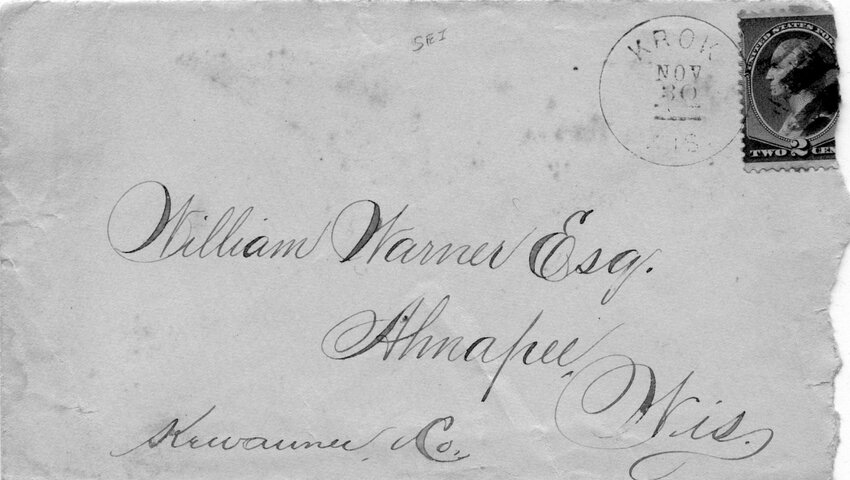 SRI
KROK
NOV
30
WIS.
UNITED STATES POS
TWO 2 CEN
William Warner Esq.
Ahnapee,
Wis.
Kewaunee, Co.